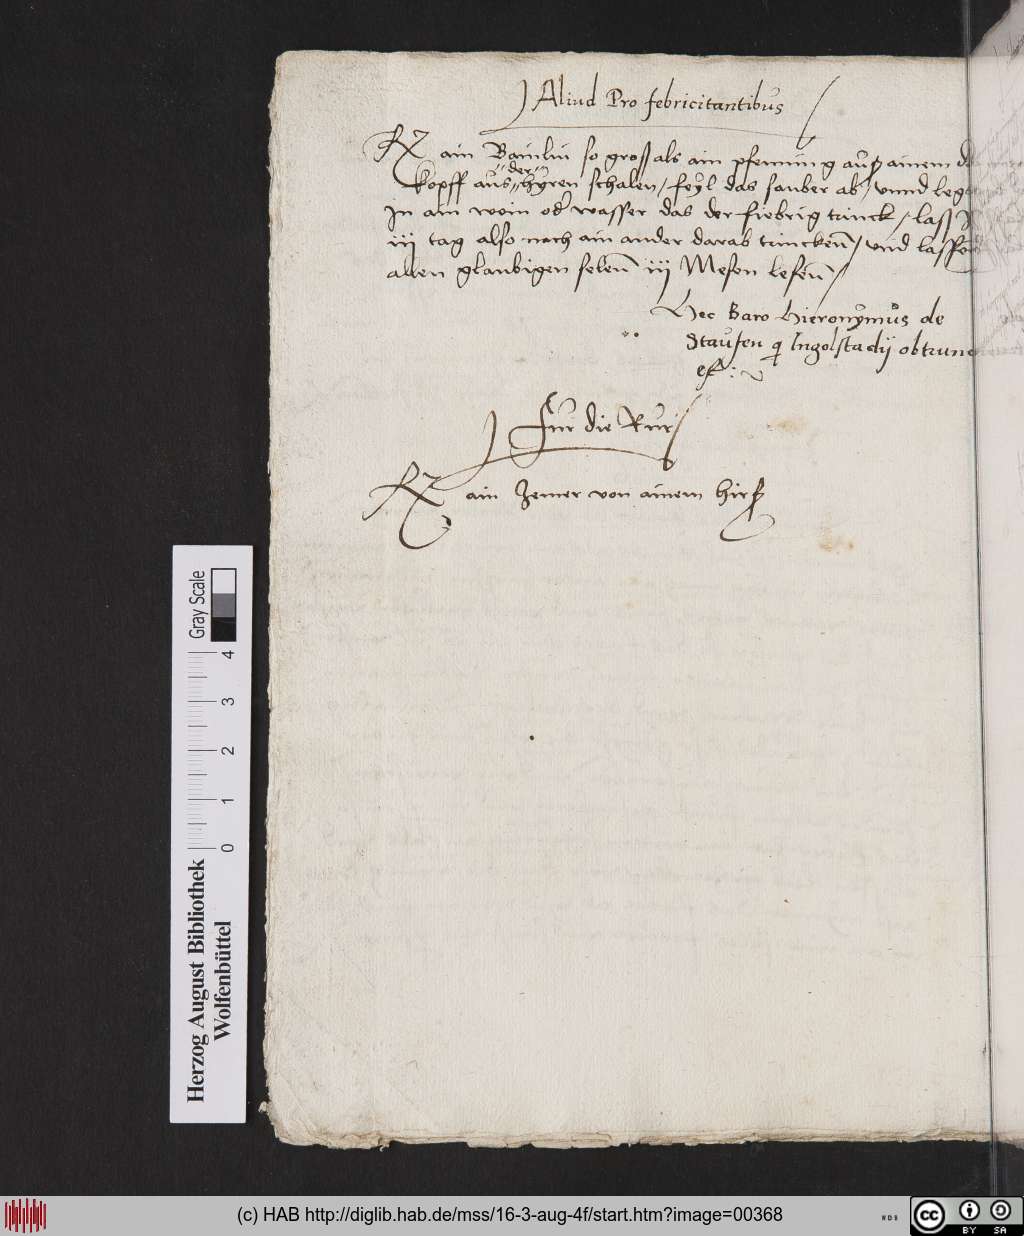 Aliud Pro febricitantibus
Rz ain Bainlin so gross als ain pfenning auß ainem
der
kopff aus hÿren schalen / feÿl das sauber ab / vnnd leg
In ain wein od wasser das der fiebrig trinck / lass
iij tag also nach ain ander darab trincken / vnd lass
allen glaubigen selen iij Mesen lesen /
Hec Baro Hieronÿmus de
Staufen q Ingolstadij obtrunc
est :
fur die Rur
Rz ain Zemer von ainem hirß
Gray Scale
0 1 2 3 4
Herzog August Bibliothek
Wolfenbüttel
(c) HAB http://diglib.hab.de/mss/16-3-aug-4f/start.htm?image=00368
WDB
cc BY SA